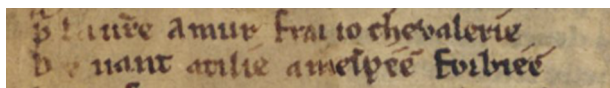 p̄ la ure amur frai io chevalerie
D nant atilie a mespee forbiee